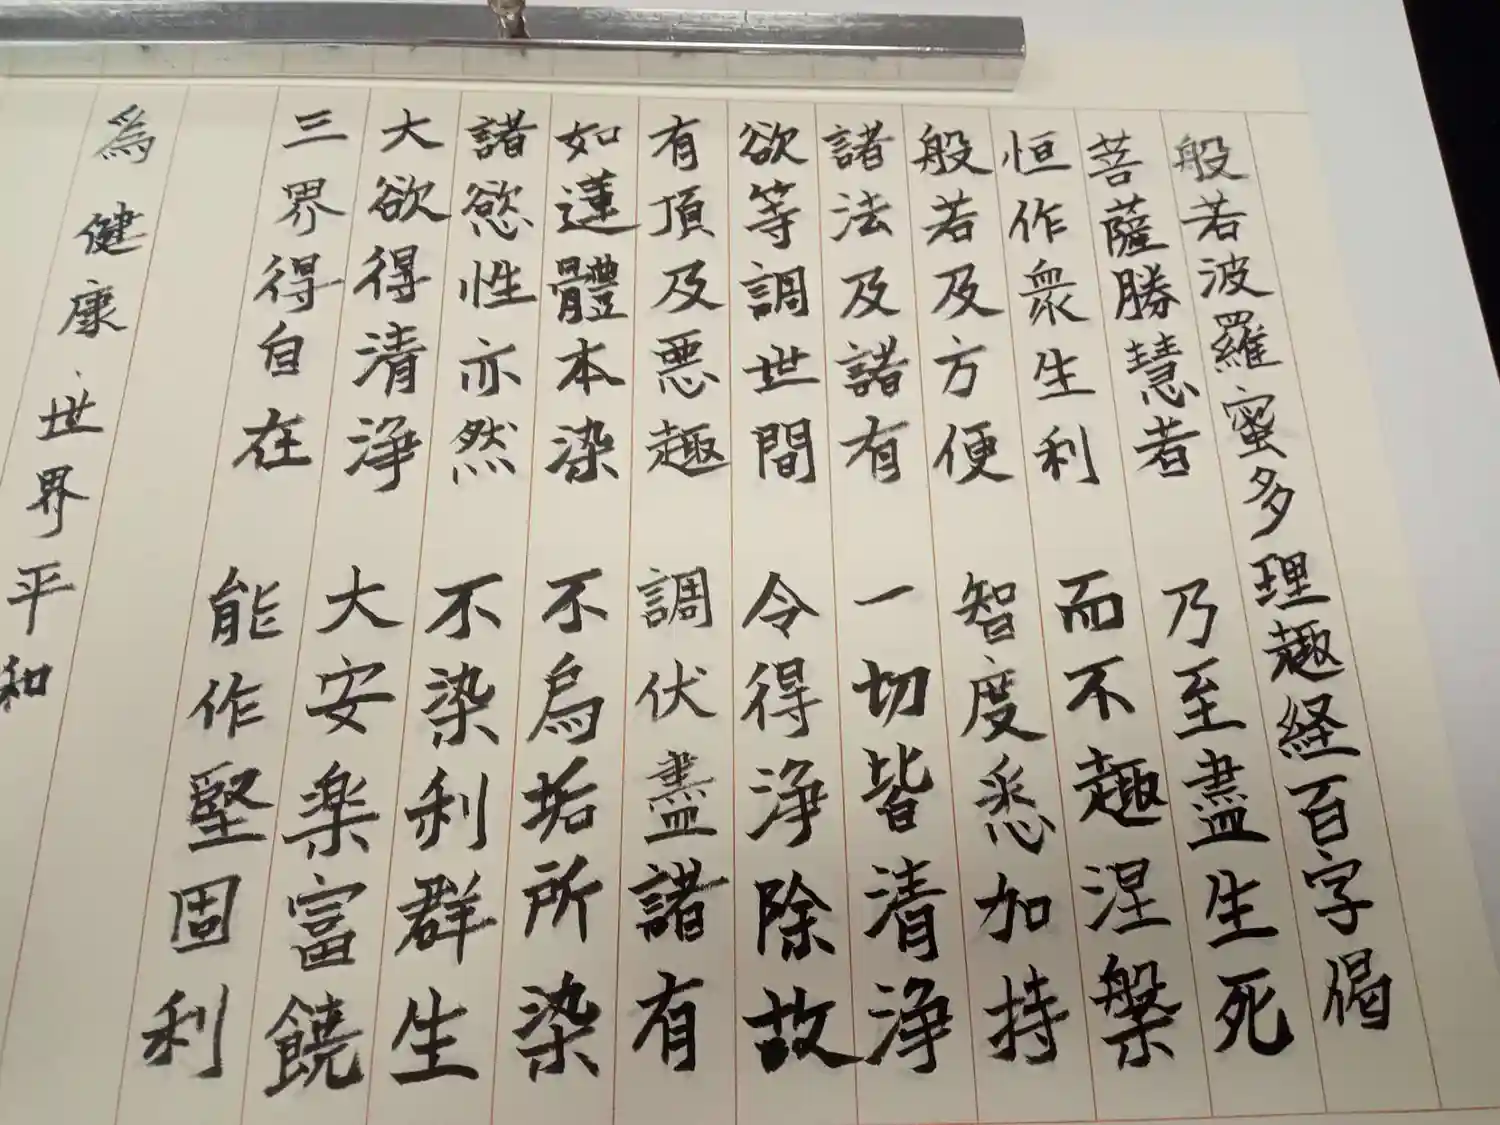 般若波羅蜜多理趣経百字偈
菩薩勝慧者 乃至盡生死
恒作衆生利 而不趣涅槃
般若及方便 智度悉加持
諸法及諸有 一切皆清浄
欲等調世間 令得浄除故
有頂及悪趣 調伏盡諸有
如蓮體本染 不為垢所染
諸慾性亦然 不染利群生
大欲得清浄 大安楽富饒
三界得自在 能作堅固利
為健康、世界平和